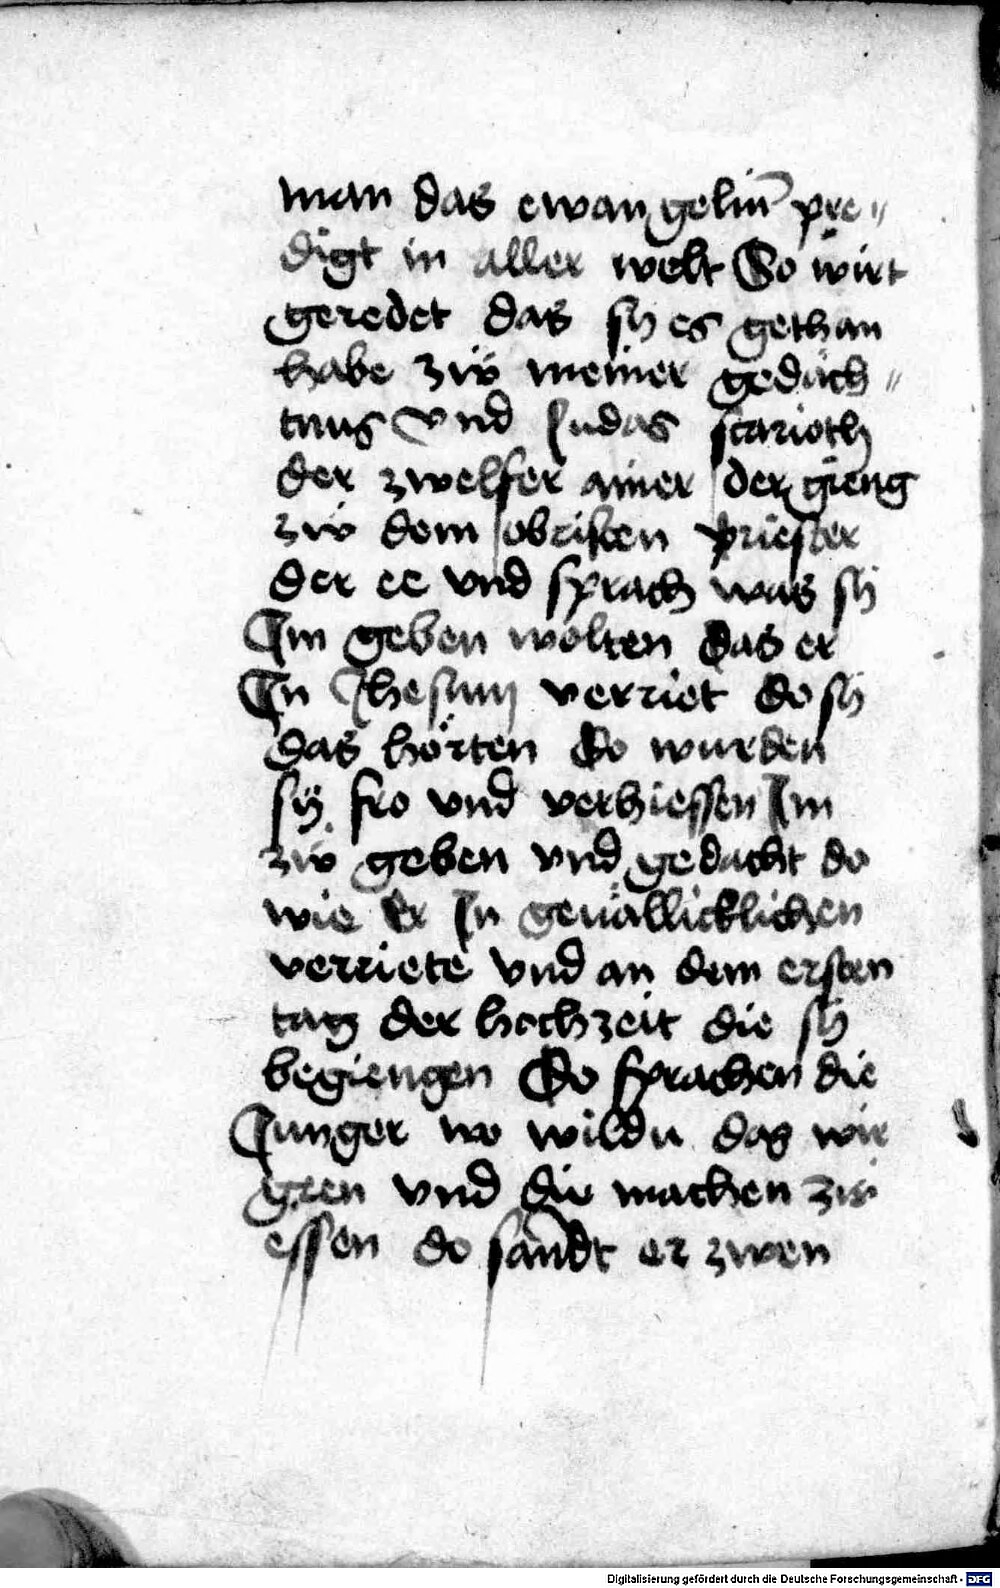 man das ewangeliū pre〃
digt in aller welt So wirt
geredet das sÿ es gethan
habe zů meiner gedäch〃
tnus Vnd Judas scarioth
der zwelfer ainer der gieng
zů dem obristen priester
der ee vnd sprach was sÿ
Im geben wolten das er
In Jhesum verriet do sÿ
das hörten Do wurden
sÿ fro vnd verhiessen Im
zů geben vnd gedacht do
wie Er In geuällicklichen
verriete vnd an dem ersten
tag der hochzeit die sÿ
begiengen Do sprachen die
Junger wo wildu das wir
geen vnd die machen zů
essen do sanndt er zwen
Digitalisierung gefördert durch die Deutsche Forschungsgemeinschaft - DFG